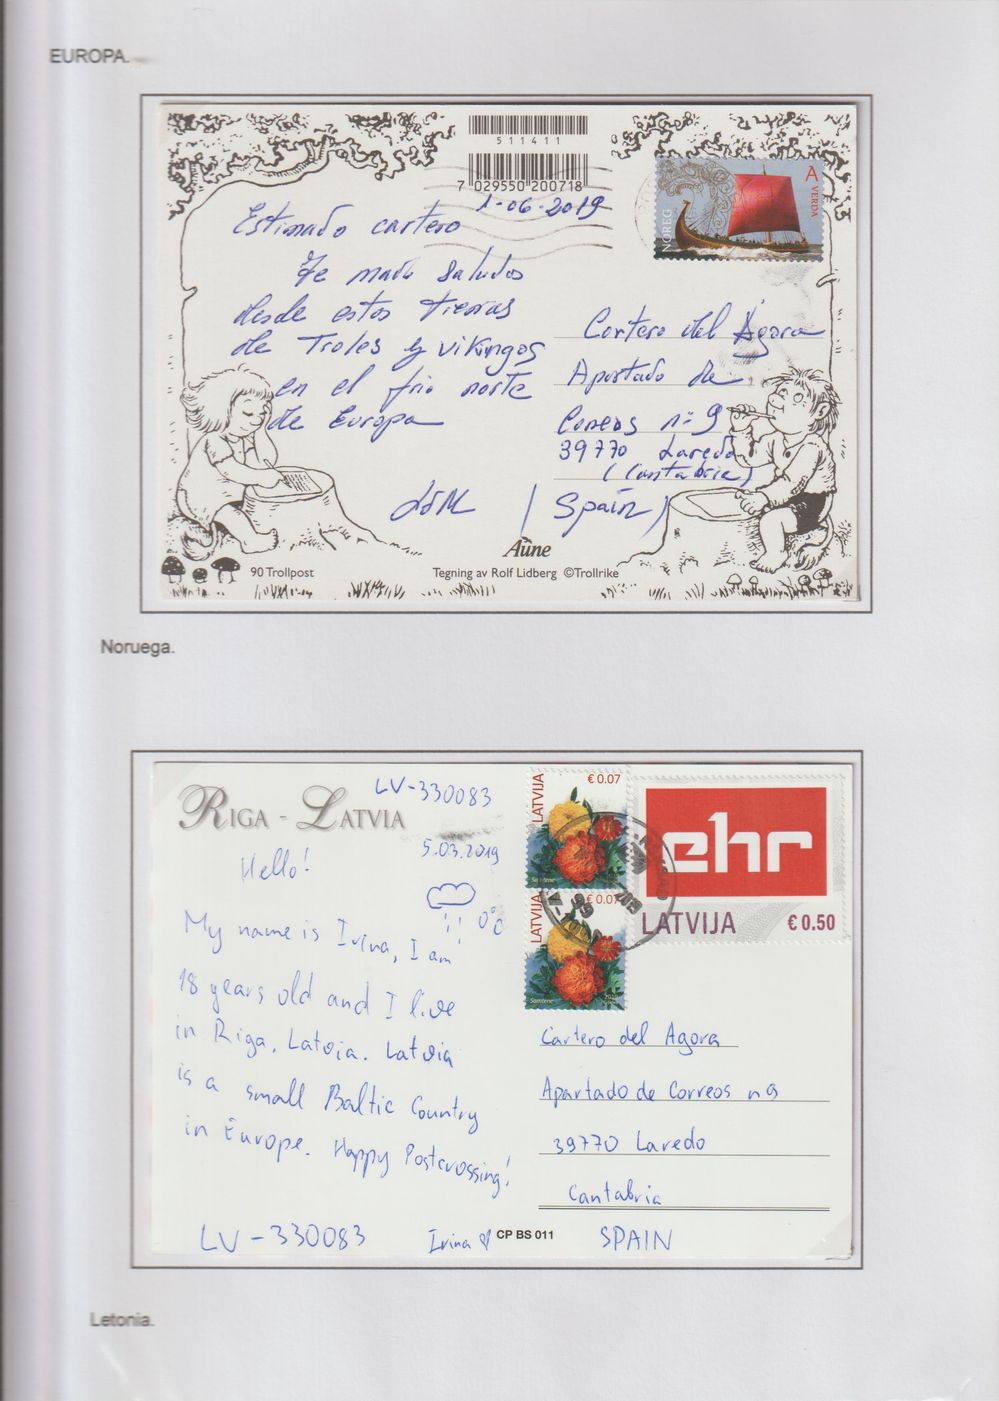 EUROPA.
511411
7 029550 200718
1-06-2019
A VERDA
NOREG
Estimado cartero
Te mado saludos
desde estas tierras
de Troles y vikingos
en el frio norte
de Europa
Cartero del Agora
Apartado de
Correos nº 9
39770 Laredo
(Cantabria)
(Spain)
Aune
90 Trollpost
Tegning av Rolf Lidberg ©Trollrike
Noruega.
RIGA - LATVIA
LV-330083
5.03.2019
0°C
Hello!
My name is Irina, I am
18 years old and I live
in Riga, Latvia. Latvia
is a small Baltic Country
in Europe. Happy Postcrossing!
LV-330083
Irina
CP BS 011
LATVIJA
€ 0.07
Samtene
LATVIJA
€ 0.07
Samtene
ehr
LATVIJA
€ 0.50
Cartero del Agora
Apartado de Correos n 9
39770 Laredo
Cantabria
SPAIN
Letonia.